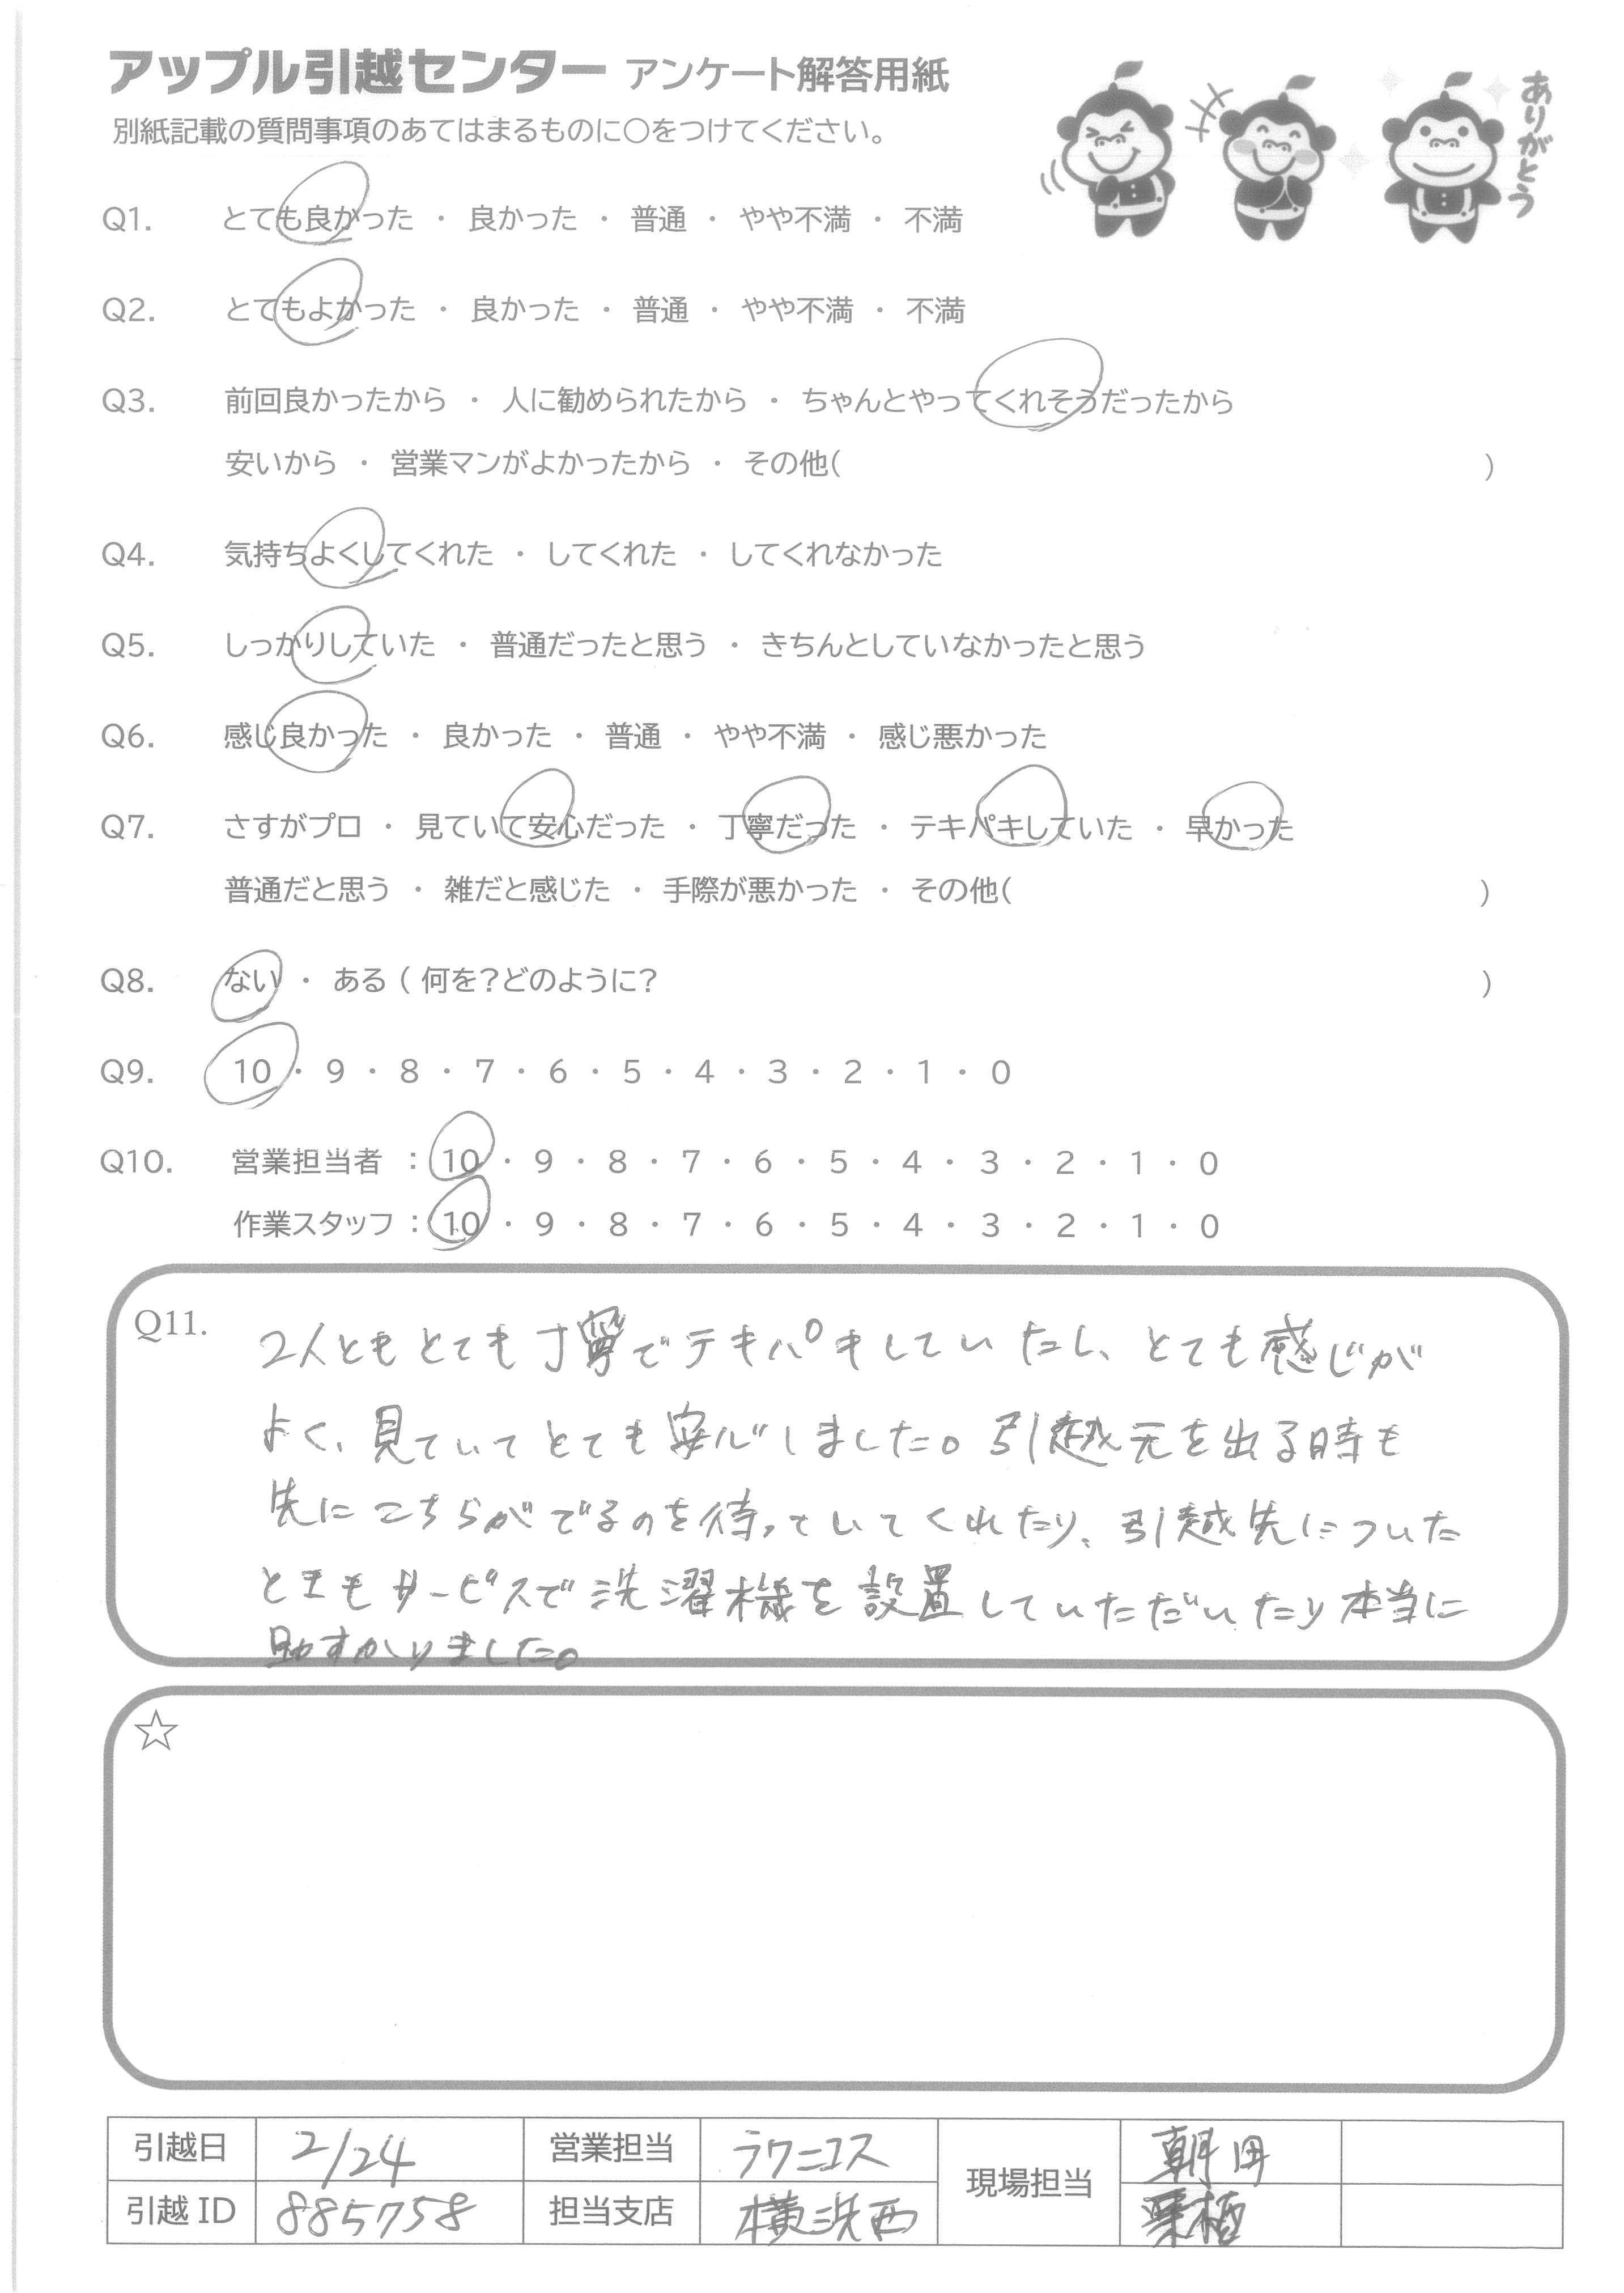 アップル引越センター アンケート解答用紙
別紙記載の質問事項のあてはまるものに○をつけてください。
ありがとう
Q1. とても良かった ・ 良かった ・ 普通 ・ やや不満 ・ 不満
Q2. とてもよかった ・ 良かった ・ 普通 ・ やや不満 ・ 不満
Q3. 前回良かったから ・ 人に勧められたから ・ ちゃんとやってくれそうだったから
安いから ・ 営業マンがよかったから ・ その他( )
Q4. 気持ちよくしてくれた ・ してくれた ・ してくれなかった
Q5. しっかりしていた ・ 普通だったと思う ・ きちんとしていなかったと思う
Q6. 感じ良かった ・ 良かった ・ 普通 ・ やや不満 ・ 感じ悪かった
Q7. さすがプロ ・ 見ていて安心だった ・ 丁寧だった ・ テキパキしていた ・ 早かった
普通だと思う ・ 雑だと感じた ・ 手際が悪かった ・ その他( )
Q8. ない ・ ある ( 何を?どのように? )
Q9. 10 ・ 9 ・ 8 ・ 7 ・ 6 ・ 5 ・ 4 ・ 3 ・ 2 ・ 1 ・ 0
Q10. 営業担当者 : 10 ・ 9 ・ 8 ・ 7 ・ 6 ・ 5 ・ 4 ・ 3 ・ 2 ・ 1 ・ 0
作業スタッフ : 10 ・ 9 ・ 8 ・ 7 ・ 6 ・ 5 ・ 4 ・ 3 ・ 2 ・ 1 ・ 0
Q11. 2人ともとても丁寧でテキパキしていたし、とても感じが
よく、見ていてとても安心しました。引越元を出る時も
先にこちらがでるのを待っていてくれたり、引越先についた
ときもサービスで洗濯機を設置していただいたり本当に
助すかりました。
☆
引越日 2/24 営業担当 ラワニコス 現場担当 朝田
引越ID 885758 担当支店 横浜西